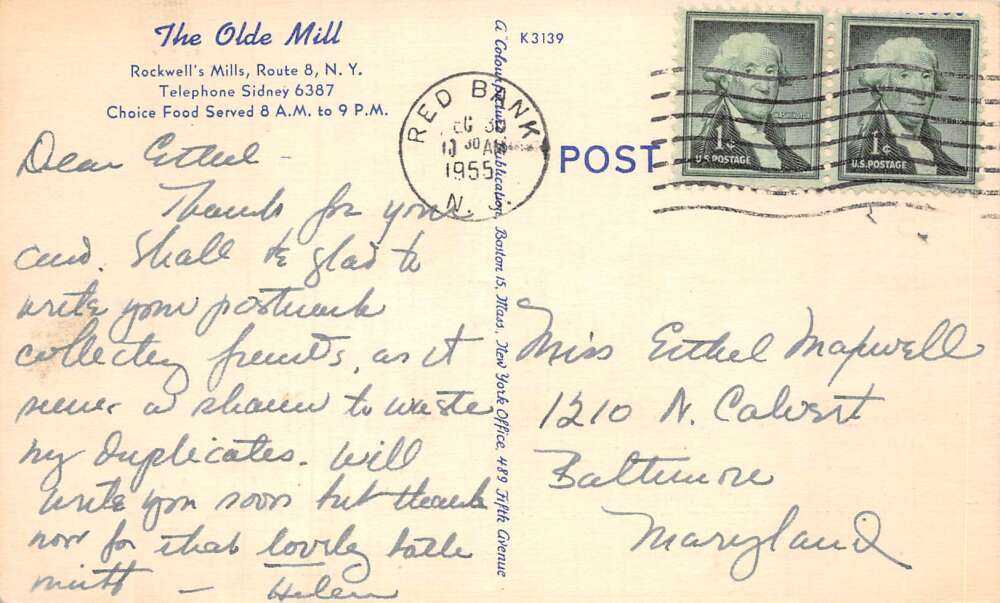 The Olde Mill
Rockwell's Mills, Route 8, N. Y.
Telephone Sidney 6387
Choice Food Served 8 A.M. to 9 P.M.
Dear Ethel -
Thanks for your
card. Shall be glad to
write your postmark
collecting friends, as it
seems a shame to waste
my duplicates. Will
write you soon but thanks
now for that lovely bath
mitt - Helen
A "Colourpicture" Publication, Boston 15, Mass., New York Office, 489 Fifth Avenue
K3139
RED BANK
30 AM
1955
N. J.
POST
1¢
U.S. POSTAGE
WASHINGTON
1¢
U.S. POSTAGE
Miss Ethel Maxwell
1210 N. Calvert
Baltimore
Maryland